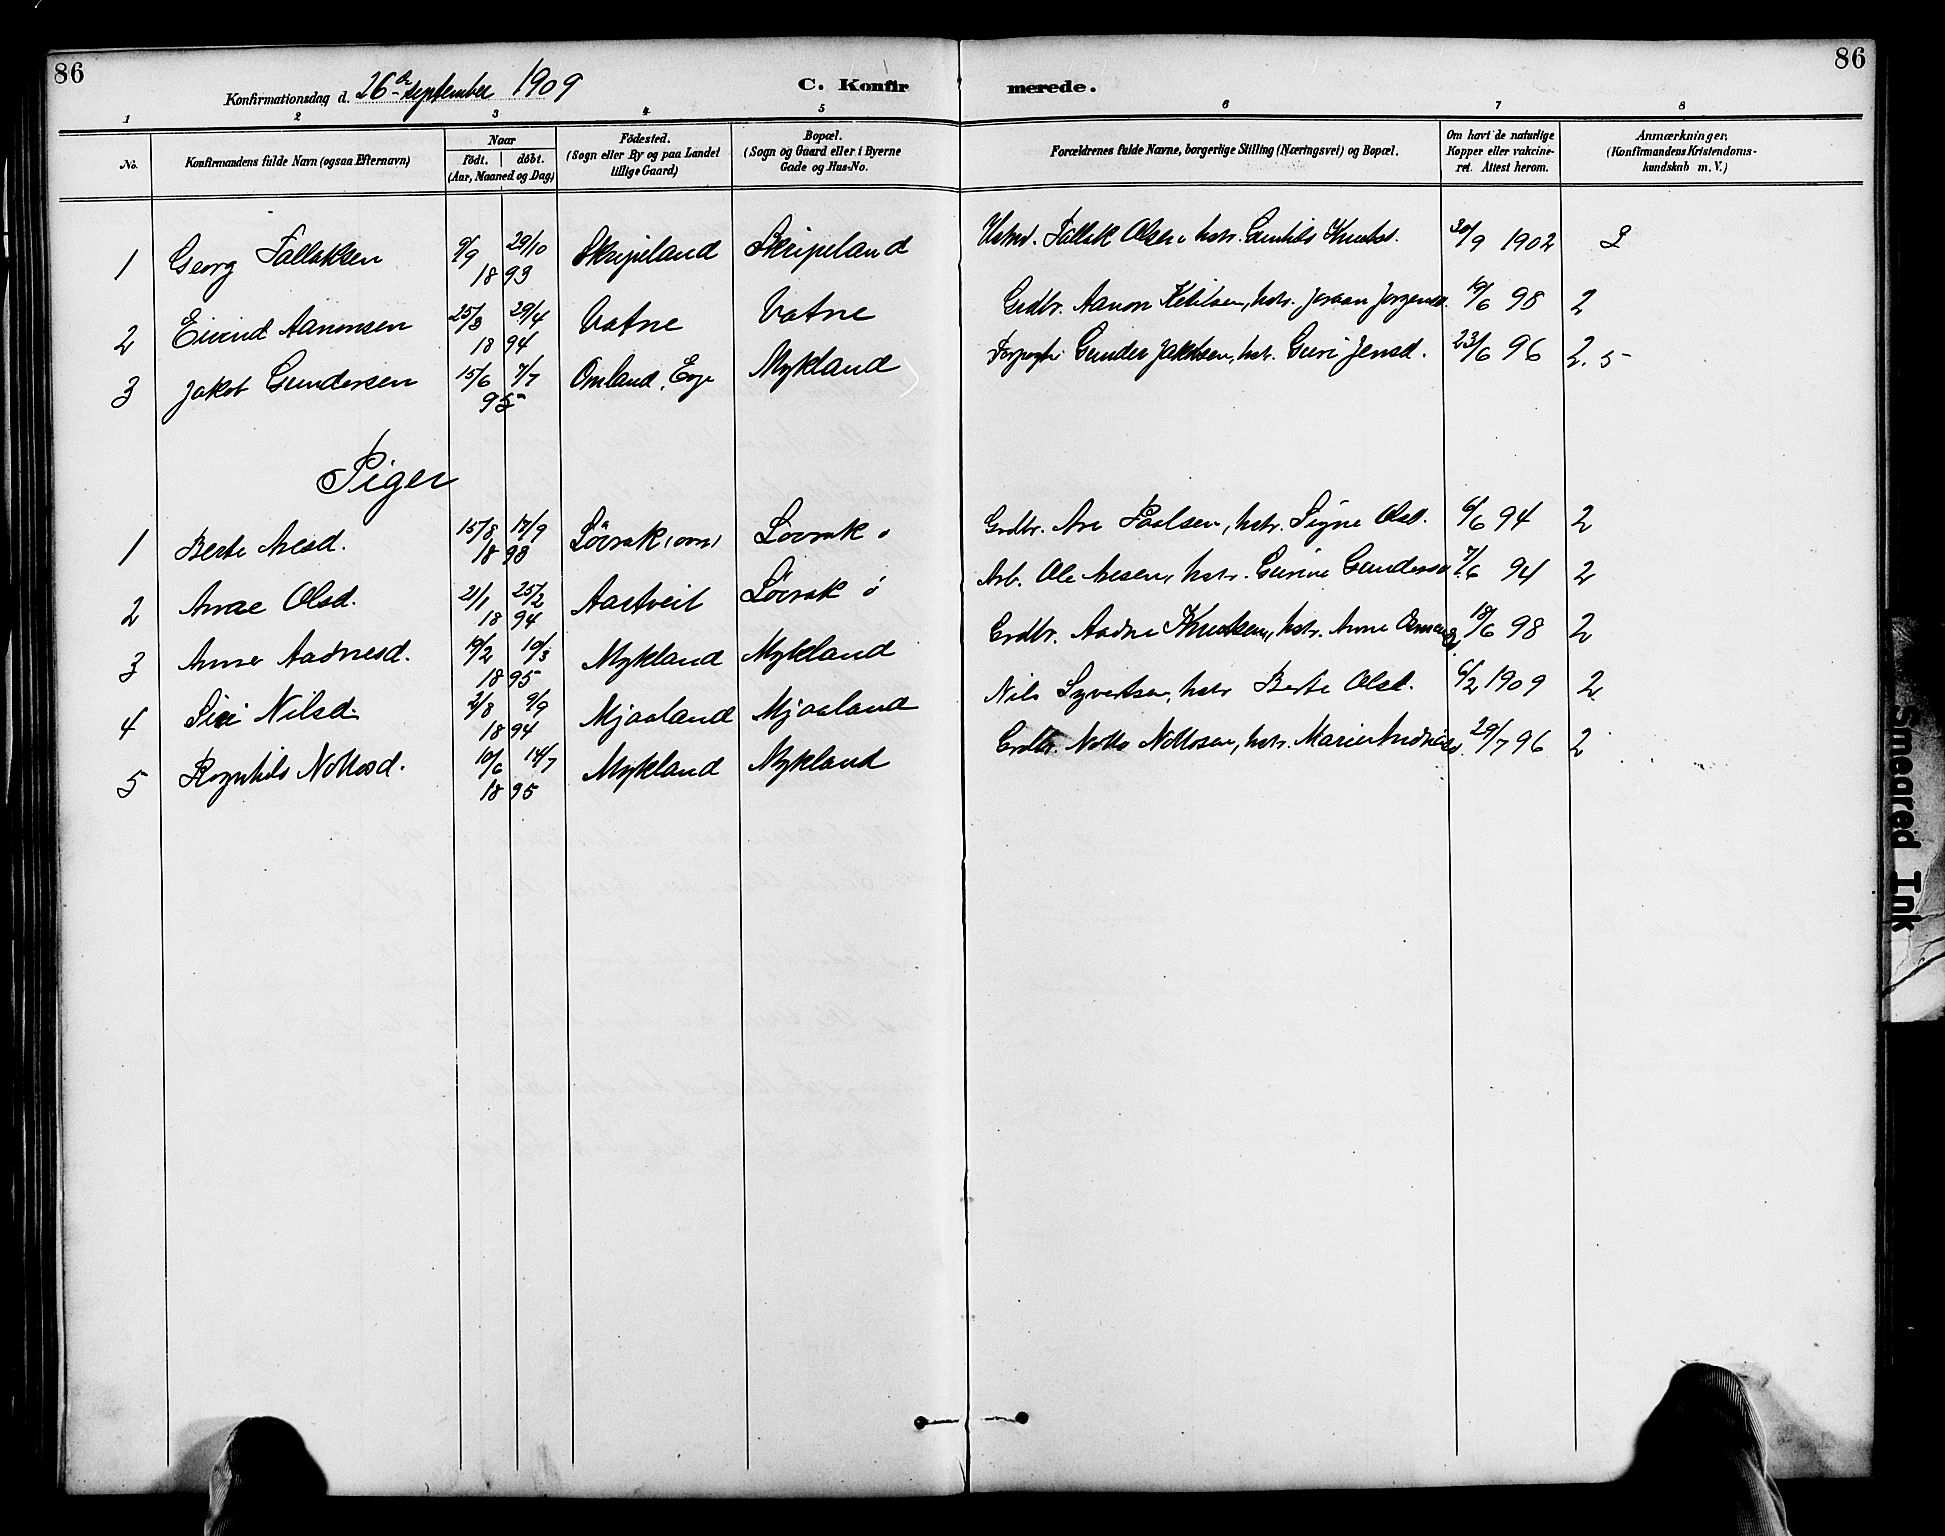 86
86
Konfirmationsdag d. 26de september 1909
C. Konfir merede.
1 2 3 4 5 6 7 8
No.
Konfirmandens fulde Navn (ogsaa Efternavn)
Naar
født. døbt.
(Aar, Maaned og Dag)
Fødested.
(Sogn eller By og paa Landet
tillige Gaard)
Bopæl.
(Sogn og Gaard eller i Byerne
Gade og Hus-No.
Forældrenes fulde Navne, borgerlige Stilling (Næringsvei) og Bopæl.
Om havt de naturlige
Kopper eller vakcine-
ret. Attest herom.
Anmærkninger,
(Konfirmandens Kristendoms-
kundskab m. V.)
1 Georg Fallaksen 9/9 29/10 1893 Skripeland Skripeland Fallak Olsen, hstr. Gunhild Knutsd. 30/9 1902 2
2 Eivind Aanonsen 25/3 29/4 1894 Vatne Vatne Grdbr. Aanon Ketilsen, hstr. Joraan Jørgensd. 19/6 98 2
3 Jakob Gundersen 15/6 7/7 95 Omland, Evje Mykland Gunder Jakobsen, hstr. Guri Jensd. 23/6 96 2.5
Piger
1 Berte Aresd. 15/8 17/9 1893 Løvrak Løvrak ø Grdbr. Are Paalsen, hstr. Signe Olsd. 6/6 94 2
2 Anne Olsd. 21/1 25/2 1894 Aastveit Løvrak ø Arb. Ole Aresen, hstr. Gurine Gundersd. 7/6 94 2
3 Anne Aadnesd. 19/2 19/3 1895 Mykland Mykland Grdbr. Aadne Knutsen, hstr. Anne 18/6 98 2
4 Siri Nilsd. 2/8 9/9 1894 Mjaaland Mjaaland Nils Syvertsen, hstr Berte Olsd. 6/2 1909 2
5 Rognhild Nottosd. 10/6 14/7 1895 Mykland Mykland Grdbr. Notto Nottosen, hstr. Marie 29/7 96 2
Smeared Ink